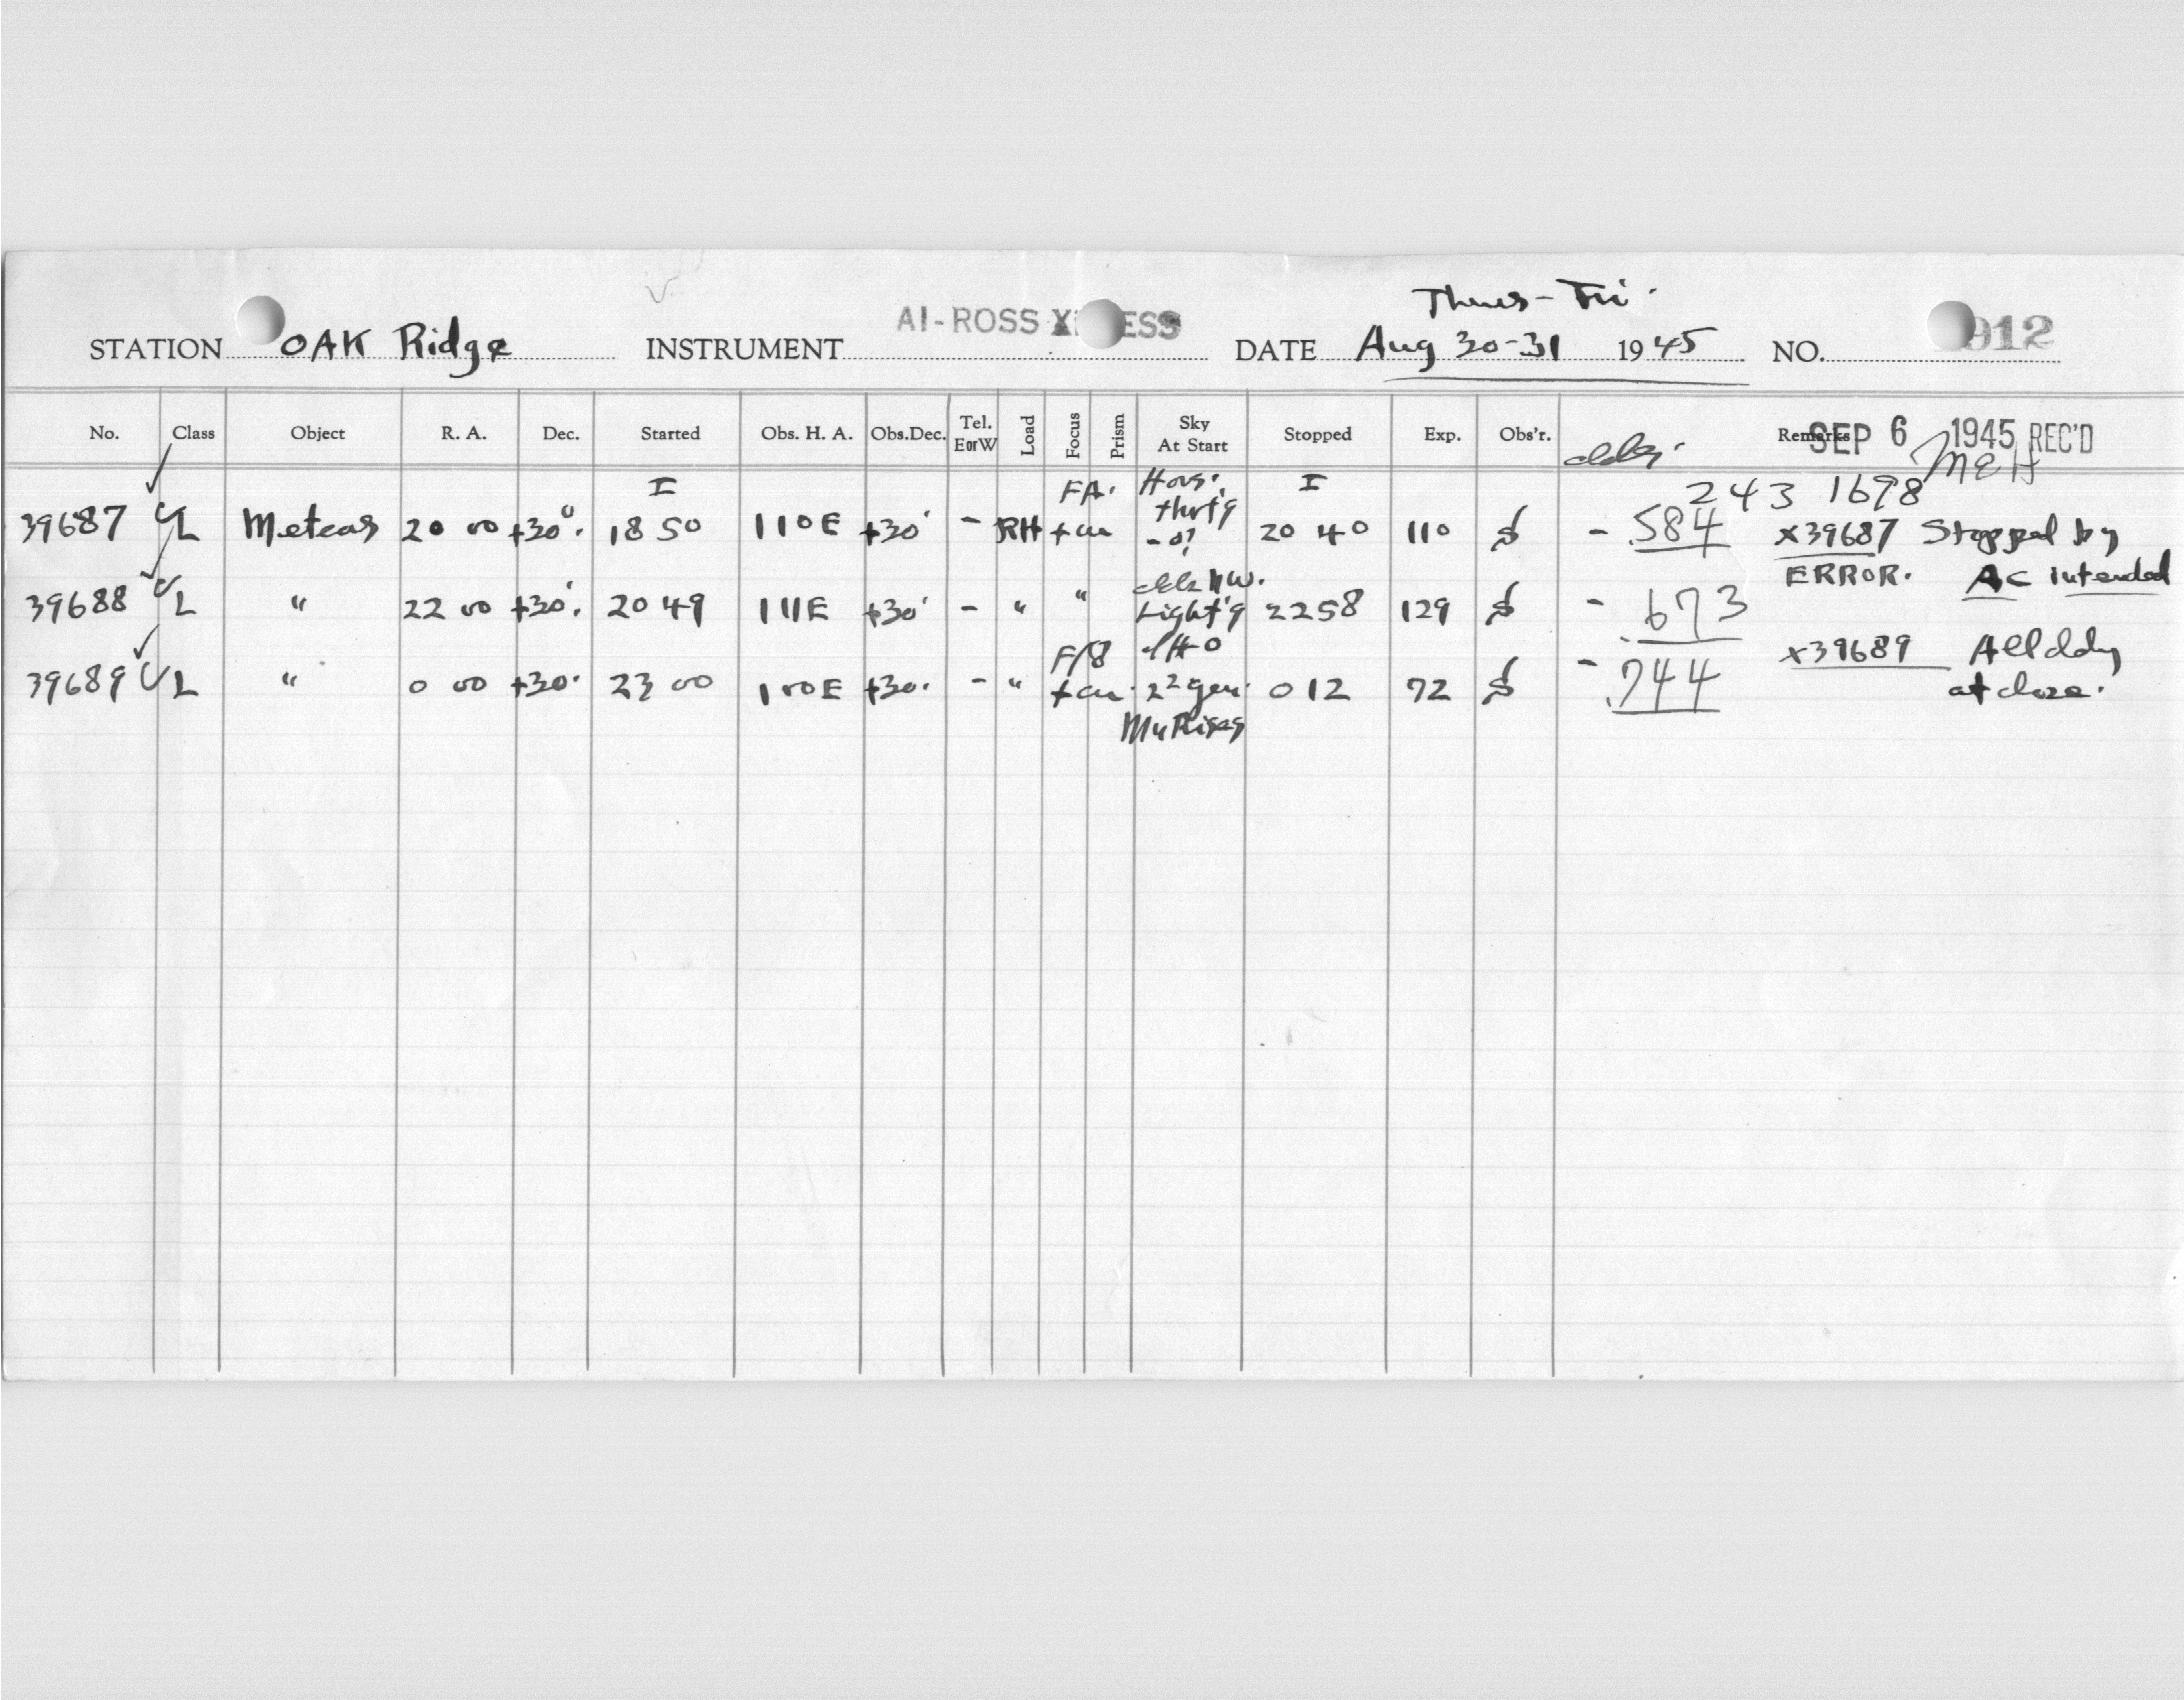 Thurs - Fri.
STATION OAK Ridge INSTRUMENT AI-ROSS X ESS DATE Aug 30-31 1945 NO. 912
No. Class Object R. A. Dec. Started Obs. H. A. Obs.Dec. Tel. EorW Load Focus Prism Sky At Start Stopped Exp. Obs'r. Remarks
SEP 6 1945 REC'D
MEH
I FA. I 243 1698
39687 L Meteors 20 00 +30°. 18 50 110E +30 - RH 20 40 110 - .584 x39687 Stopped by
ERROR. AC intended
39688 L " 22 00 +30. 20 49 111E +30 - " " Light'g 2258 129 - .673
F/8 x39689 All cldy
39689 L " 0 00 +30. 23 00 100E +30. - " 0 12 72 - .744 at close.
Mn Rises